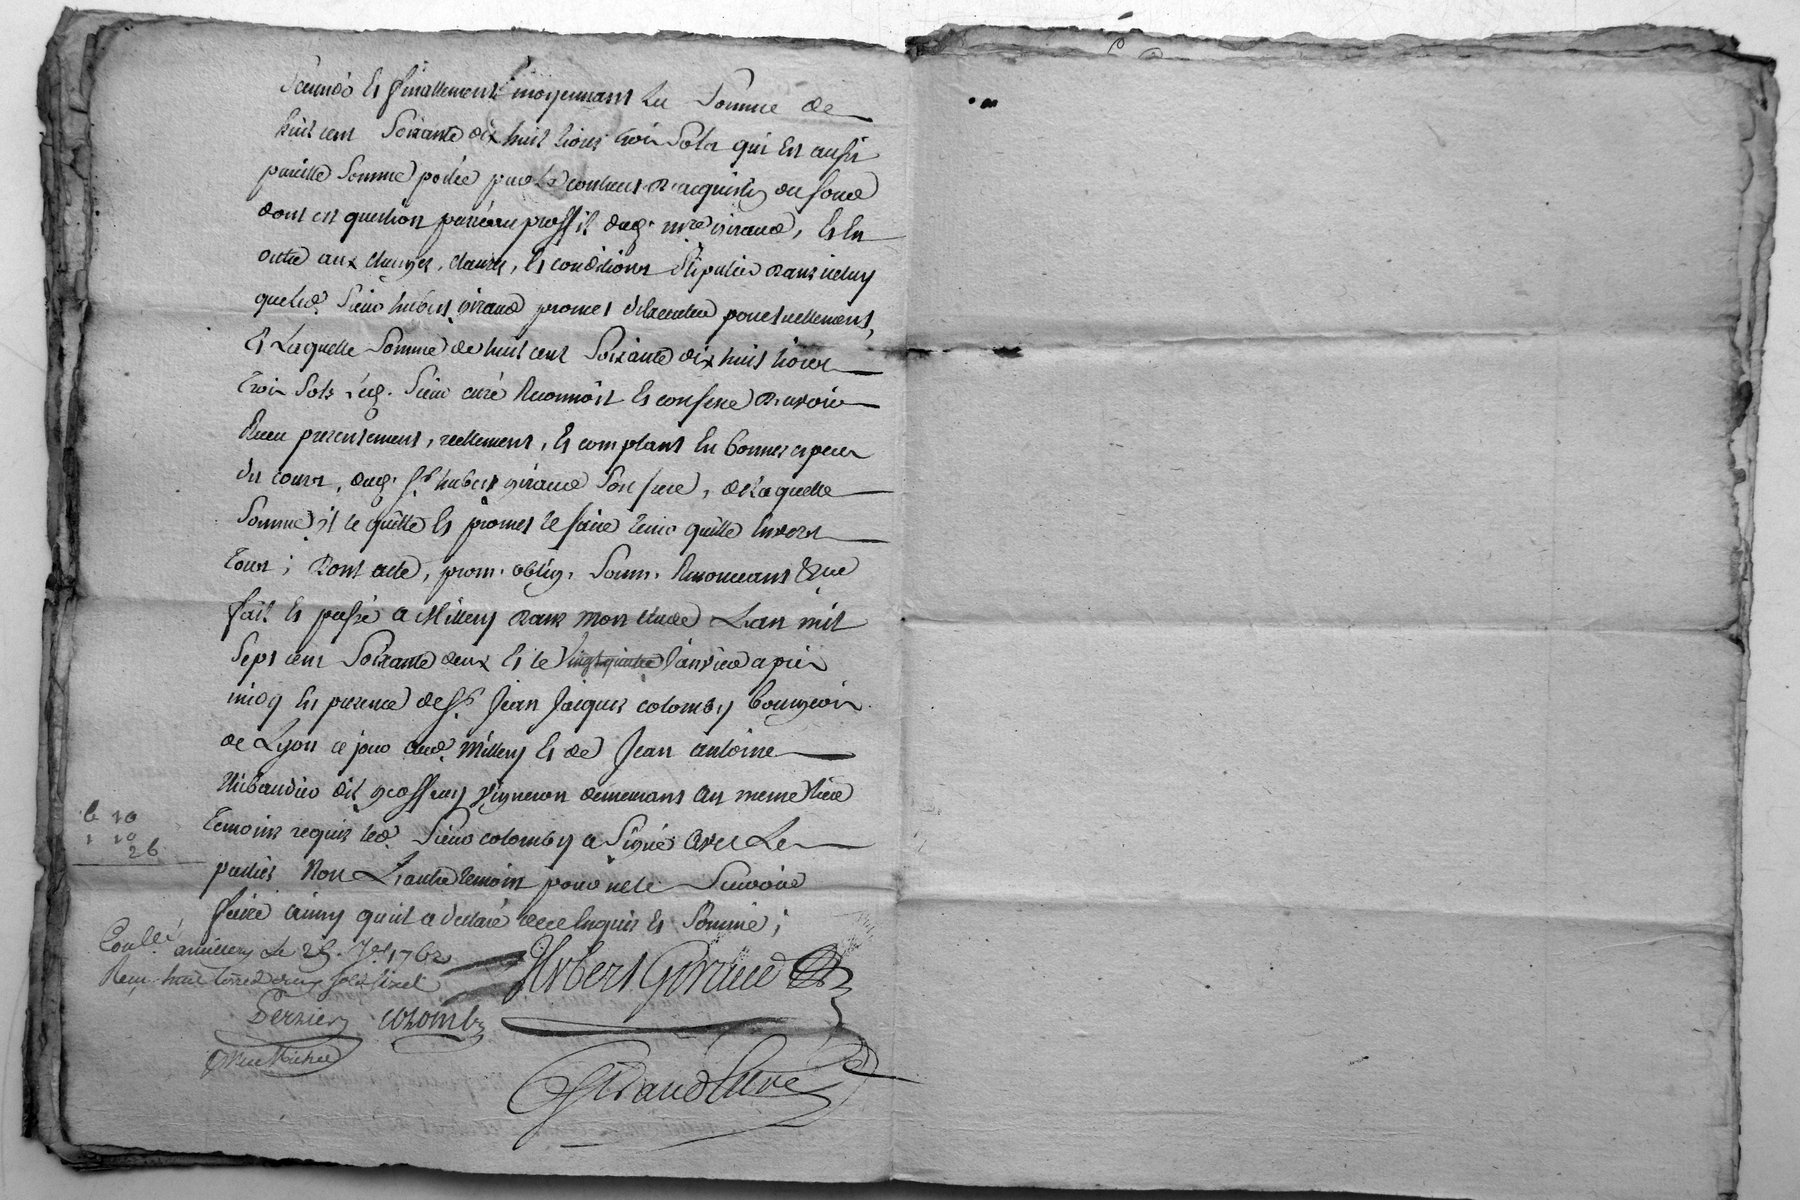 et finallement moyennant la somme de
huit cent soixante dix huit livres trois sols qui est aussi
pareille somme portée par le contract d'acquisi^on du fond
dont est question passé au proffit dud. m^re giraud, et en
outre aux charges, clauses, et conditions stipulées dans iceluy
que led. sieur hubert giraud promet d'executer ponctuellement,
et laquelle somme de huit cent soixante dix huit livres
trois sols led. sieur curé reconnoit et confesse d'avoir
receu presentement, reellement, et comptant en bonnes especes
du cours, dud. s^r hubert giraud son frere, de laquelle
somme il le quitte et promet le faire tenir quitte envers
tous; dont acte, prom. oblig. soum. renonceant &ce
fait et passé a Millery dans mon etude l'an mil
sept cent soixante deux et le vingt quatre janvier apres
midy en presence de s^r Jean Jacques colomby bourgeois
de Lyon ce jour aud. Millery et de Jean antoine
dit vigneron demeurant au meme lieu
temoins requis led. sieur colomby a signé avec les
parties non l'autre temoin pour ne le sçavoir
faire ainsy qu'il a declaré de ce enquis et sommé;
6 10
1 10
26
Con^llé a millery le 25. J^er 1762
Reçu huit livres deux sols
hubert Giraud
colomby
Giraud Curé